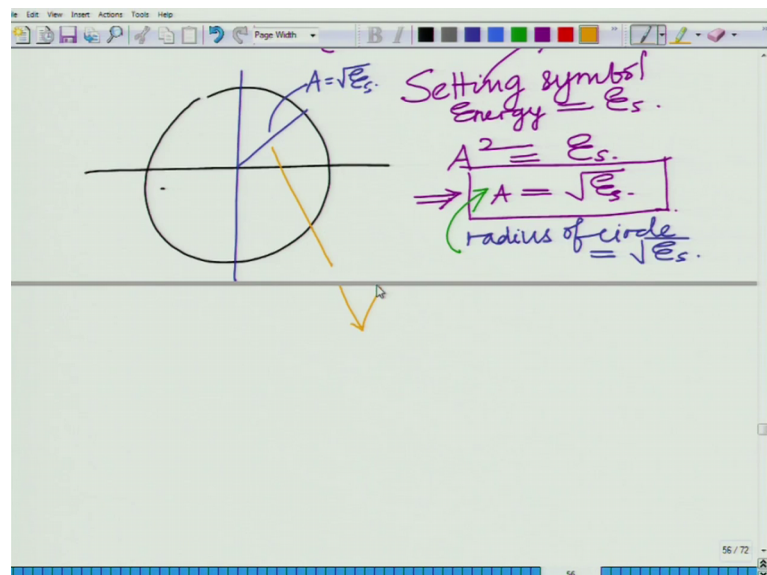 le Edit View Insert Actions Tools Help
Page Width
B I
A = √Es.
Setting symbol
Energy = Es.
A² = Es.
⇒ A = √Es.
radius of circle
= √Es.
56 / 72
56